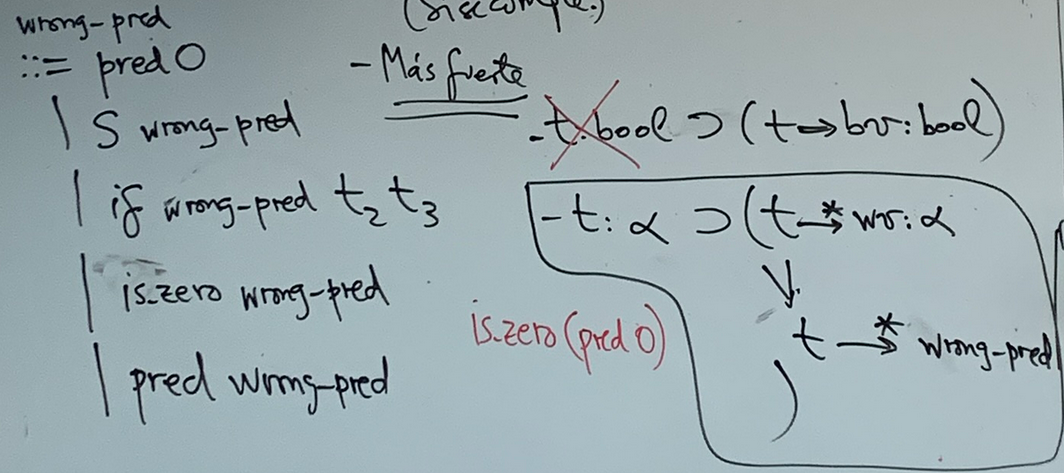 wrong-pred
::= pred 0
| S wrong-pred
| if wrong-pred t₂ t₃
| is-zero wrong-pred
| pred wrong-pred
- Más fuerte
- t: bool ⊃ (t → bv: bool)
- t: α ⊃ (t →* wv: α
∨
t →* wrong-pred
)
is-zero (pred 0)